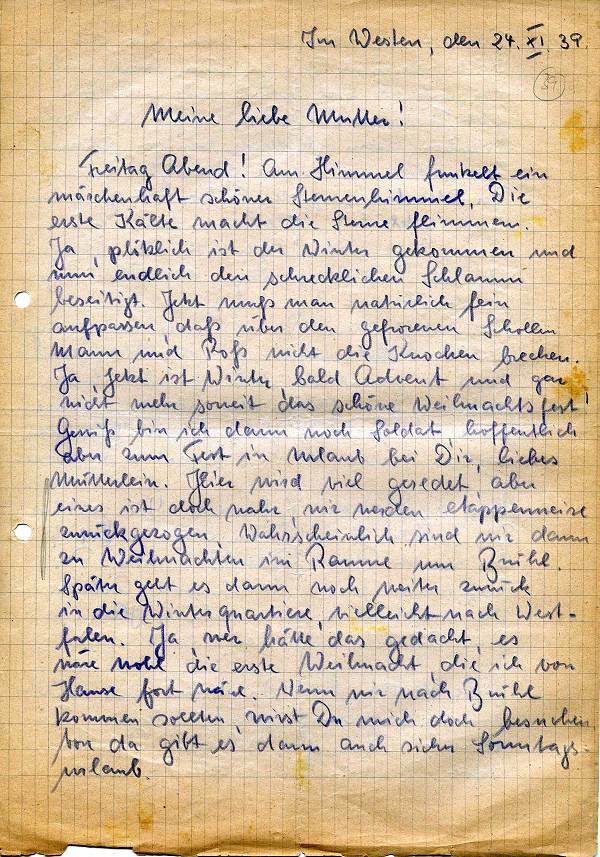 Im Westen, den 24. XI. 39.
39
Meine liebe Mutter!
Freitag Abend! Am Himmel funkelt ein
märchenhaft schöner Sternenhimmel. Die
erste Kälte macht die Sterne flimmern.
Ja, plötzlich ist der Winter gekommen und
nun endlich den schrecklichen Schlamm
beseitigt. Jetzt muß man natürlich fein
aufpassen, daß über den gefrorenen Schollen
Mann und Roß nicht die Knochen brechen.
Ja, jetzt ist Winter, bald Advent und gar
nicht mehr soweit das schöne Weihnachtsfest!
Gewiß bin ich dann noch Soldat, hoffentlich
aber zum Fest in Urlaub bei Dir, liebes
Mütterlein. Hier wird viel geredet, aber
eines ist doch wahr, wir werden etappenweise
zurückgezogen. Wahrscheinlich sind wir dann
zu Weihnachten im Raume um Brühl.
Später geht es dann noch weiter zurück
in die Winterquartiere, vielleicht nach West-
falen. Ja, wer hätte das gedacht, es
wäre wohl die erste Weihnacht, die ich von
Hause fort wäre. Wenn wir nach Brühl
kommen sollten, wirst Du mich doch besuchen,
von da gibt es dann auch sicher Sonntags-
urlaub.